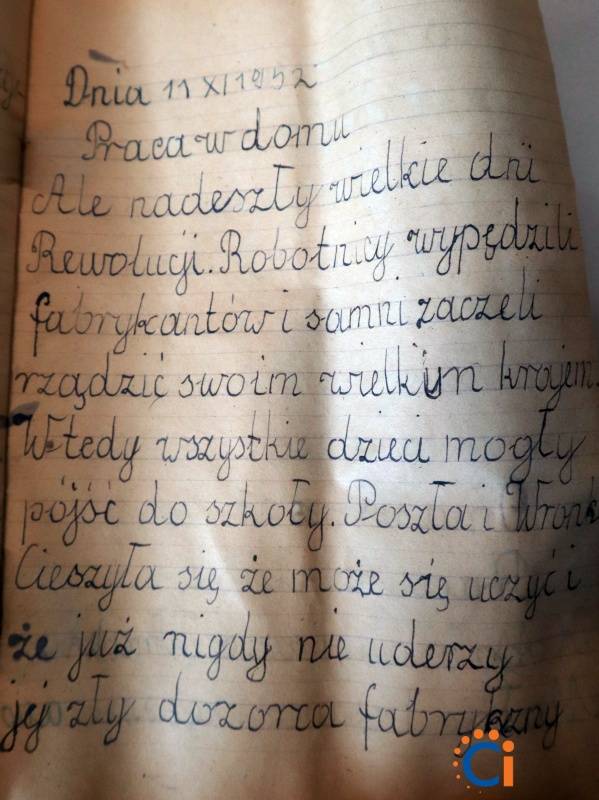 Dnia 11 XI 1952
Praca w domu
Ale nadeszły wielkie dni
Rewolucji. Robotnicy wypędzili
fabrykantów i samni zaczeli
rządzić swoim wielkim krajem.
Wtedy wszystkie dzieci mogły
pójść do szkoły. Poszła i
Cieszyła się że może się uczyć i
że już nigdy nie uderzy
jej zły dozorca fabryczny
Ci